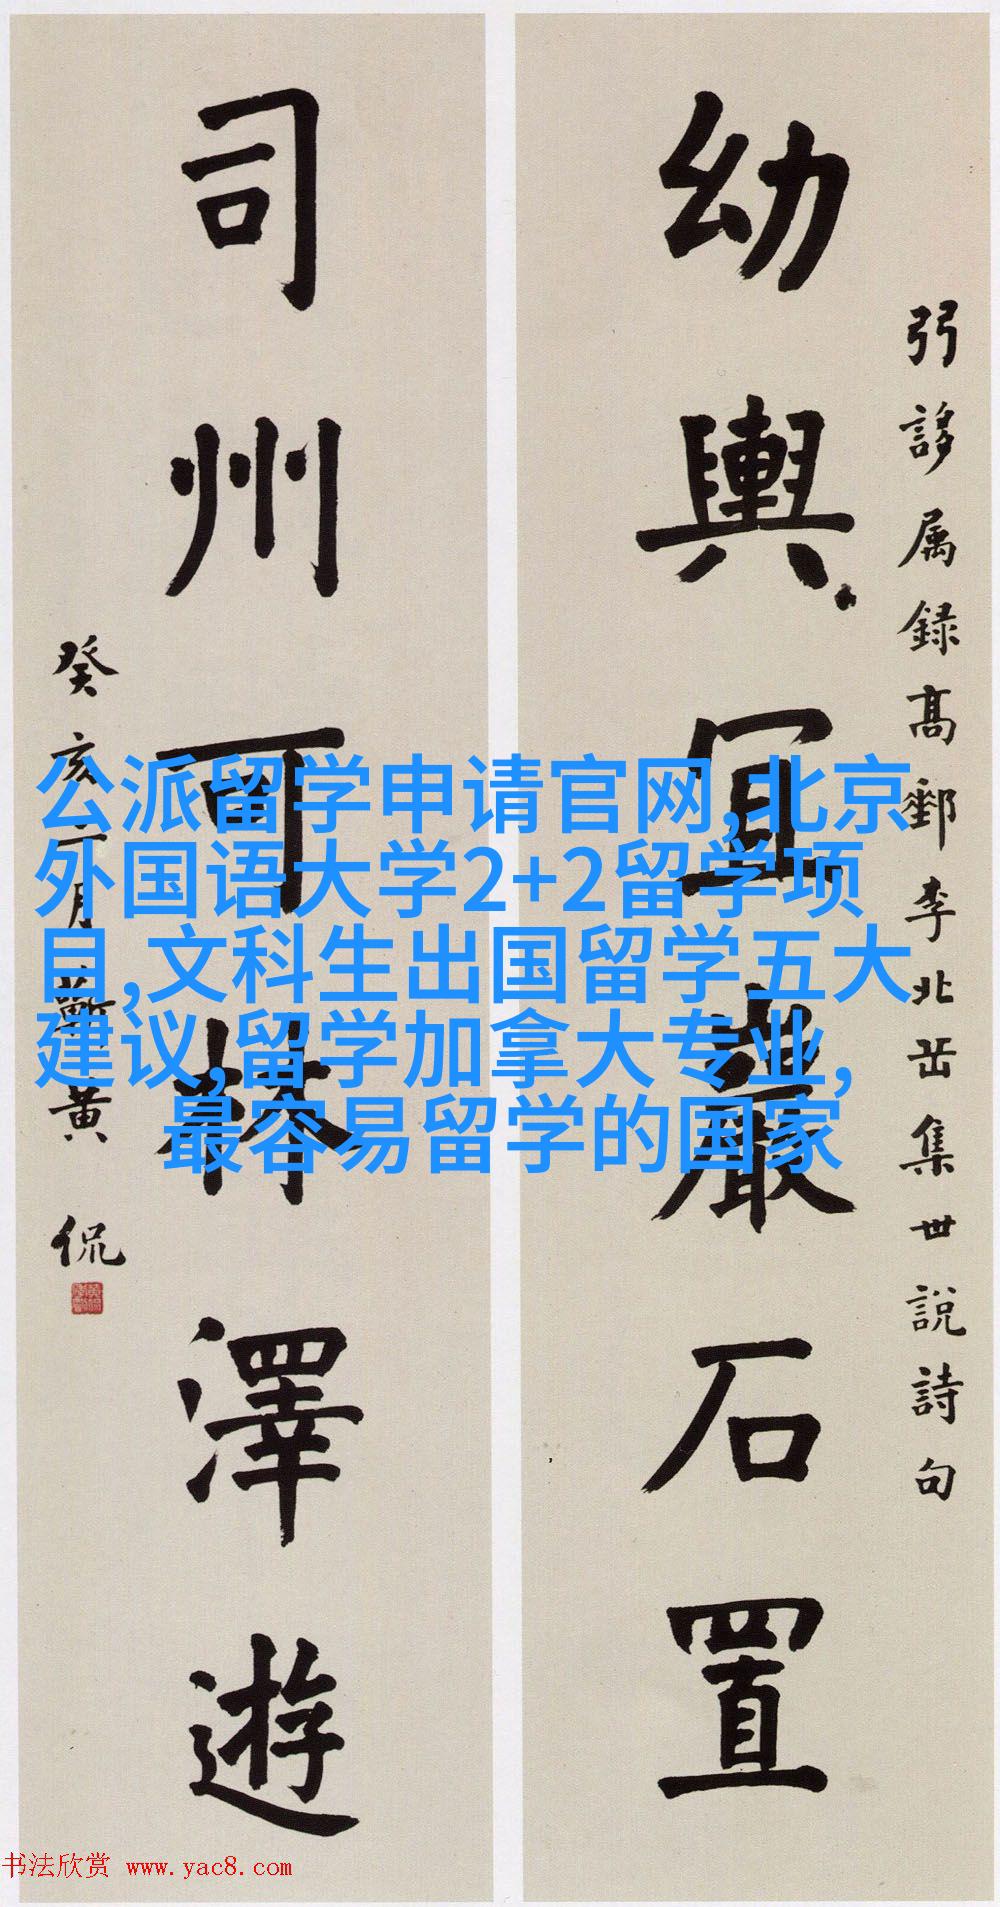 弜誃属録高郵李北岳集世說詩句
幼輿宜巖石置
司州可林澤遊
癸亥二月蘄黃侃
公派留学申请官网,北京
外国语大学2+2留学项
目,文科生出国留学五大
建议,留学加拿大专业,
最容易留学的国家
书法欣赏 www.yac8.com